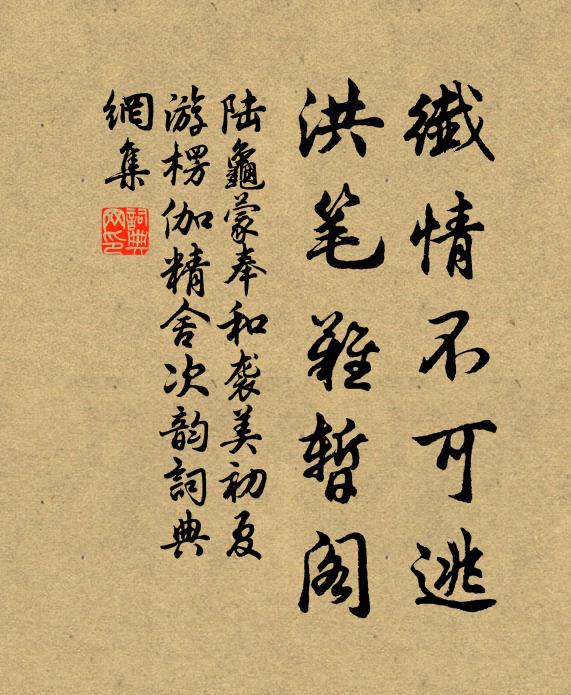 纖情不可逃
洪笔難暫阁
陆龜蒙奉和袭美初夏
游楞伽精舍次韵詞典
網集
詞典网印